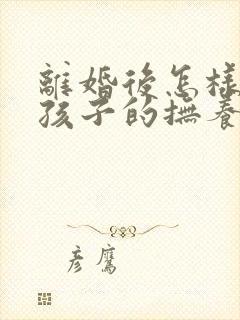 離婚後怎樣
孩子的撫養
彥鷹